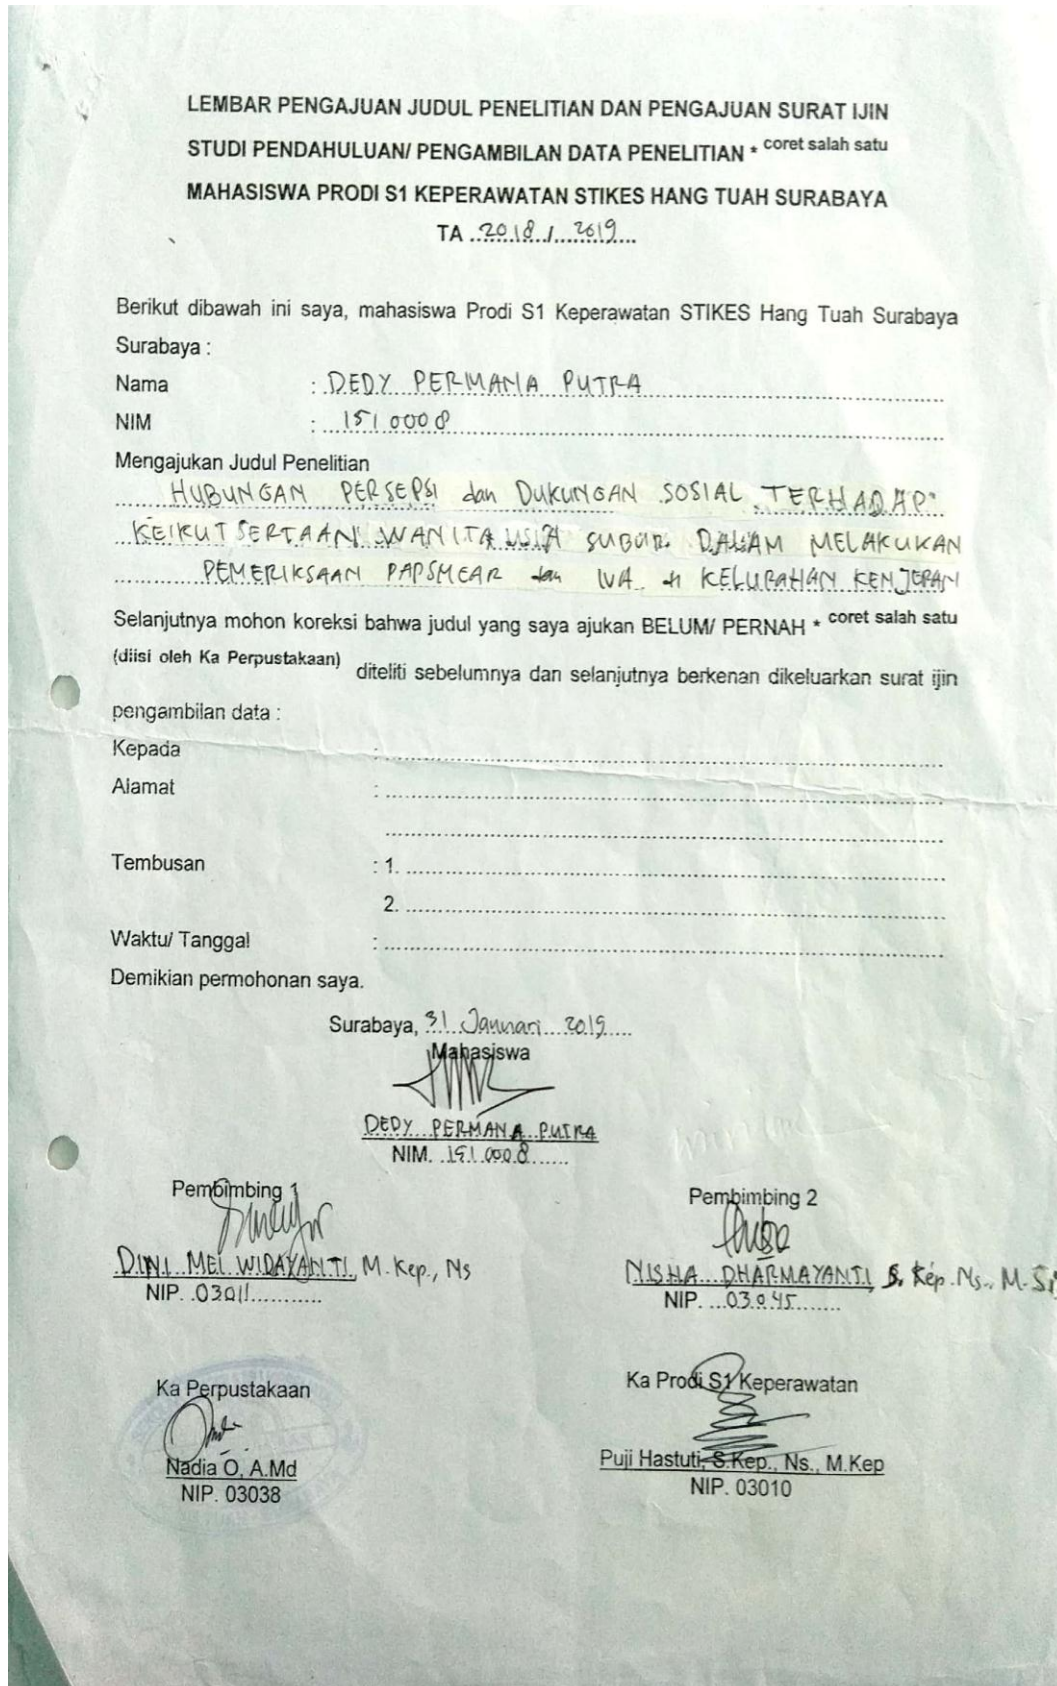 LEMBAR PENGAJUAN JUDUL PENELITIAN DAN PENGAJUAN SURAT IJIN
STUDI PENDAHULUAN/ PENGAMBILAN DATA PENELITIAN * coret salah satu
MAHASISWA PRODI S1 KEPERAWATAN STIKES HANG TUAH SURABAYA
TA 2018 / 2019
Berikut dibawah ini saya, mahasiswa Prodi S1 Keperawatan STIKES Hang Tuah Surabaya
Surabaya :
Nama : DEDY PERMANA PUTRA
NIM : 151 0008
Mengajukan Judul Penelitian
HUBUNGAN PERSEPSI dan DUKUNGAN SOSIAL TERHADAP
KEIKUTSERTAAN WANITA USIA SUBUR DALAM MELAKUKAN
PEMERIKSAAN PAPSMEAR dan IVA di KELURAHAN KENJERAN
Selanjutnya mohon koreksi bahwa judul yang saya ajukan BELUM/ PERNAH * coret salah satu
(diisi oleh Ka Perpustakaan) diteliti sebelumnya dan selanjutnya berkenan dikeluarkan surat ijin
pengambilan data :
Kepada :
Alamat :
Tembusan : 1.
2.
Waktu/ Tanggal :
Demikian permohonan saya.
Surabaya, 31 Januari 2019
Mahasiswa
DEDY PERMANA PUTRA
NIM. 151.0008
Pembimbing 1
Pembimbing 2
DINI MEI WIDAYANTI, M.Kep., Ns
NISHA DHARMAYANTI, S.Kep.Ns., M.Si
NIP. 03011
NIP. 03.045
Ka Perpustakaan
Ka Prodi S1 Keperawatan
Nadia O, A.Md
Puji Hastuti, S.Kep., Ns., M.Kep
NIP. 03038
NIP. 03010